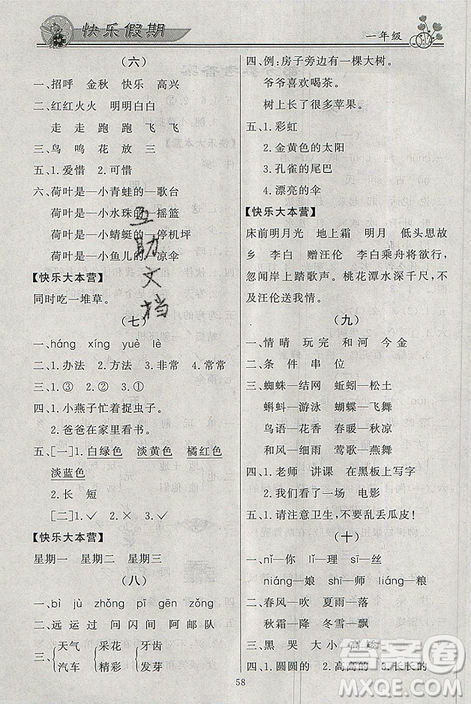 快乐假期
一年级
（六）
一、招呼 金秋 快乐 高兴
二、红红火火 明明白白
走走 跑跑 飞飞
三、鸟 鸣 花 放 三
五、1.爱惜 2.可惜
六、荷叶是—小青蛙的—歌台
荷叶是—小水珠的—摇篮
荷叶是—小蜻蜓的—停机坪
荷叶是—小鱼儿的—凉伞
【快乐大本营】
同时吃一堆草。
（七）
一、háng xíng yuè lè
二、1.办法 2.方法 3.非常 4.常常
三、1.① 2.② 3.①
四、1.小燕子忙着捉虫子。
2.爸爸在家里看书。
五、[一]1.白绿色 淡黄色 橘红色
淡蓝色
2.长 短
[二]1.✓ 2.✓ 3.×
【快乐大本营】
星期一 星期二 星期三
（八）
一、bì jù zhǒng pǐ cǎi
二、远 运 过 问 闪 间 阿 邮 队
三、天气 采花 牙齿
汽车 精彩 发芽
四、例：房子旁边有一棵大树。
爷爷喜欢喝茶。
树上长了很多苹果。
五、1.彩虹
2.金黄色的太阳
3.孔雀的尾巴
4.漂亮的伞
【快乐大本营】
床前明月光 地上霜 明月 低头思故
乡 李白 赠汪伦 李白乘舟将欲行，
忽闻岸上踏歌声。桃花潭水深千尺，不
及汪伦送我情。
（九）
一、情 晴 玩 完 和 河 今 金
二、条 件 串 位
三、蜘蛛—结网 蚯蚓—松土
蝌蚪—游泳 蝴蝶—飞舞
鸟语—花香 春暖—花开
和风—细雨 莺歌—燕舞
四、1.老师 讲课 在黑板上写字
2.我们 看了一场 电影
五、1.请注意卫生，不要乱丢瓜皮果壳。
（十）
一、nǐ—你 lǐ—理 sī—丝
niáng—娘 shī—师 niáo
二、春风—吹 夏雨—落
秋霜—降 冬雪—飘
三、黑 哭 大 小
四、1.圆圆的 2.高高的 3.长长的
58
互助文档